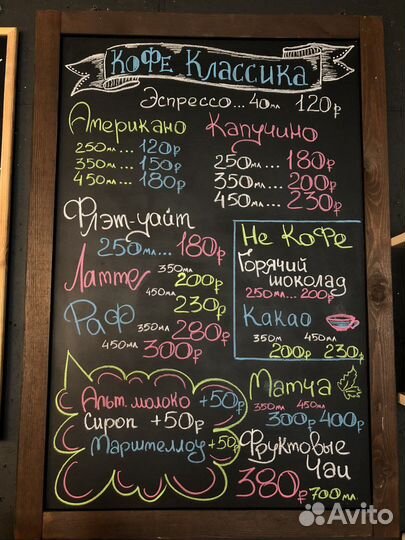 Кофе Классика
Эспрессо... 40мл 120₽
Американо
250мл... 120₽
350мл... 150₽
450мл... 180₽
Капучино
250мл... 180₽
350мл... 200₽
450мл... 230₽
Флэт-уайт
250мл... 180₽
Латте 350мл 200₽
450мл 230₽
Раф 350мл 280₽
450мл 300₽
Не Кофе
Горячий
шоколад
250мл... 200₽
Какао
350м 450мл
200₽ 230₽
Альт.молоко +50₽
Сироп +50₽
Маршмеллоу +50₽
Матча
350мл 450мл
300₽ 400₽
Фруктовые
Чаи
380₽ 700мл
Avito